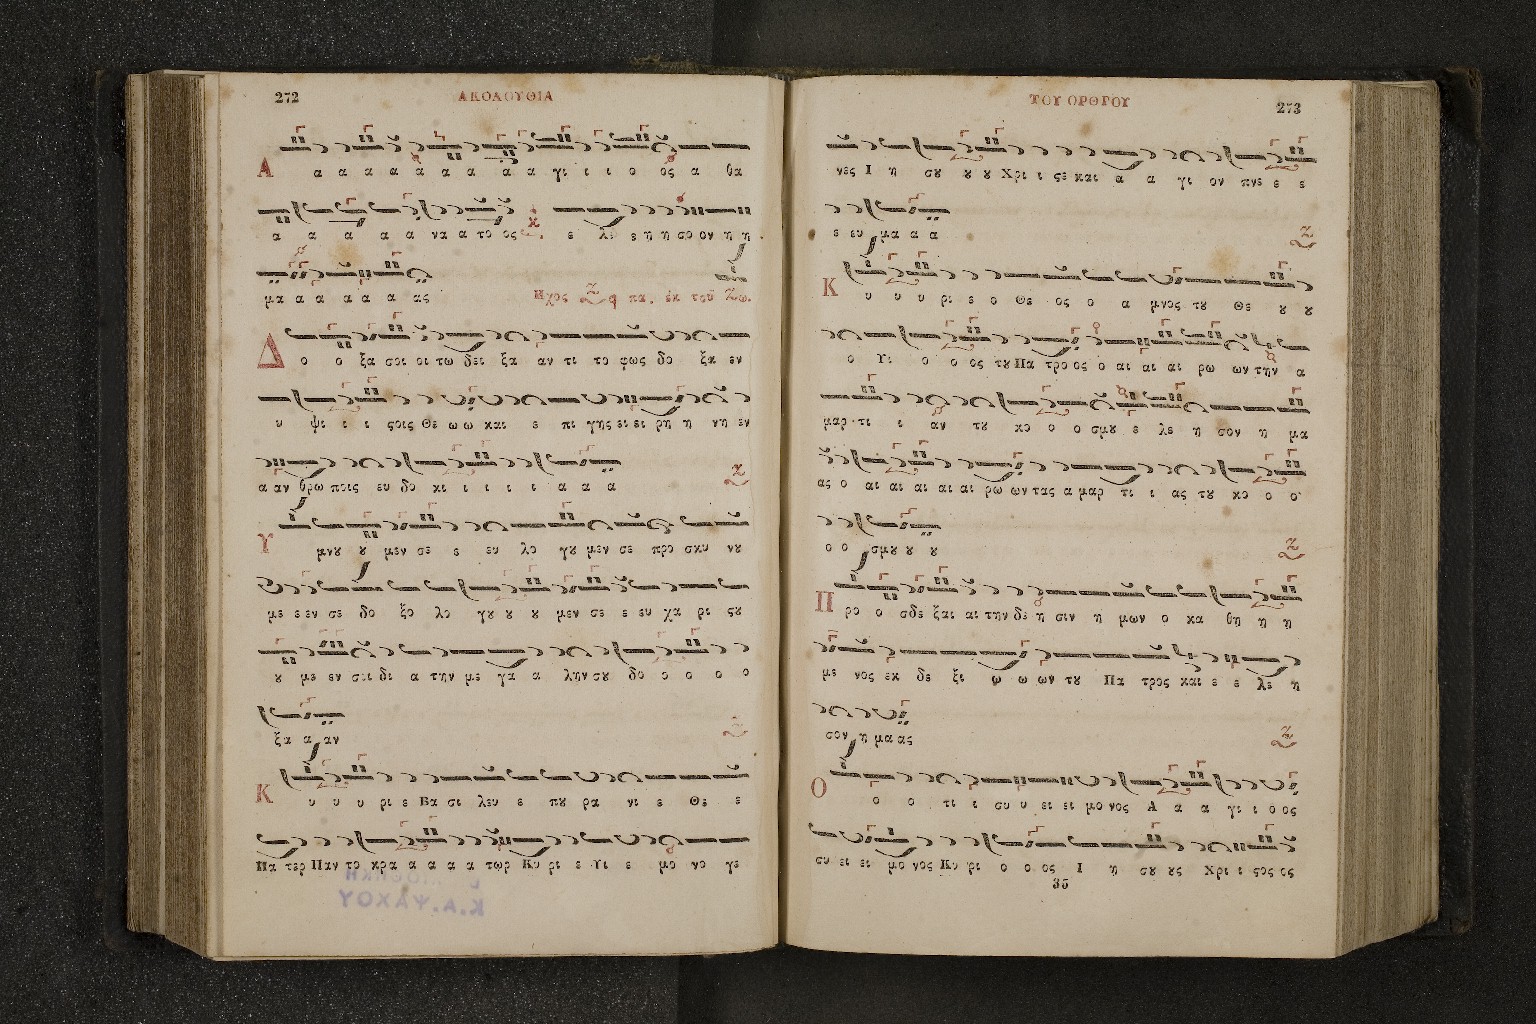 272
ΑΚΟΛΟΥΘΙΑ
Α α α α α α α α α α γι ι ι ο ος α θα
α α α α α να α το ος ε λε ε η η σο ον η η
μα α α α α α ας Ηχος πα. ἐκ τοῦ Ζω.
Δ ο ο ξα σοι οι τω δει ξα αν τι το φως δο ξα εν
υ ψι ι ι ςοις Θε ω ω και ε πι γης ει ει ρη η νη εν
α αν θρω ποις ευ δο κι ι ι ι ι α α α
Υ μνȣ ȣ μεν σε ε ευ λο γȣ μεν σε προ σκυ νȣ
με ε εν σε δο ξο λο γȣ ȣ ȣ μεν σε ε ευ χα ρι ςȣ
ȣ με εν σοι δι α την με γα α λην σȣ δο ο ο ο ο
ξα α αν
Κ υ υ υ ρι ε Βα σι λευ ε πȣ ρα νι ε Θε ε
Πα τερ Παν το κρα α α α α τωρ Κυ ρι ε Υι ε μο νο γε
Κ.Α.ΨΑΧΟΥ
ΤΟΥ ΟΡΘΡΟΥ
273
νες Ι η σȣ ȣ ȣ Χρι ι ςε και α α γι ον πνε ε ε
ε ευ μα α α
Κ υ υ υ ρι ε ο Θε ος ο α μνος τȣ Θε ȣ ȣ
ο Υι ο ο ος τȣ Πα τρο ος ο αι αι αι ρω ων την α
μαρ τι ι αν τȣ κο ο ο σμȣ ε λε η σον η μα
ας ο αι αι αι αι αι ρω ων τας α μαρ τι ι ας τȣ κο ο ο
ο ο σμȣ ȣ ȣ
Π ρο ο σδε ξαι αι την δε η σιν η μων ο κα θη η η
με νος εκ δε ξι ω ω ων τȣ Πα τρος και ε ε λε η
σον η μα ας
Ο ο ο τι ι συ υ ει ει μο νος Α α α γι ι ο ος
συ ει ει μο νος Κυ ρι ο ο ος Ι η σȣ ȣς Χρι ι ςος ος
35